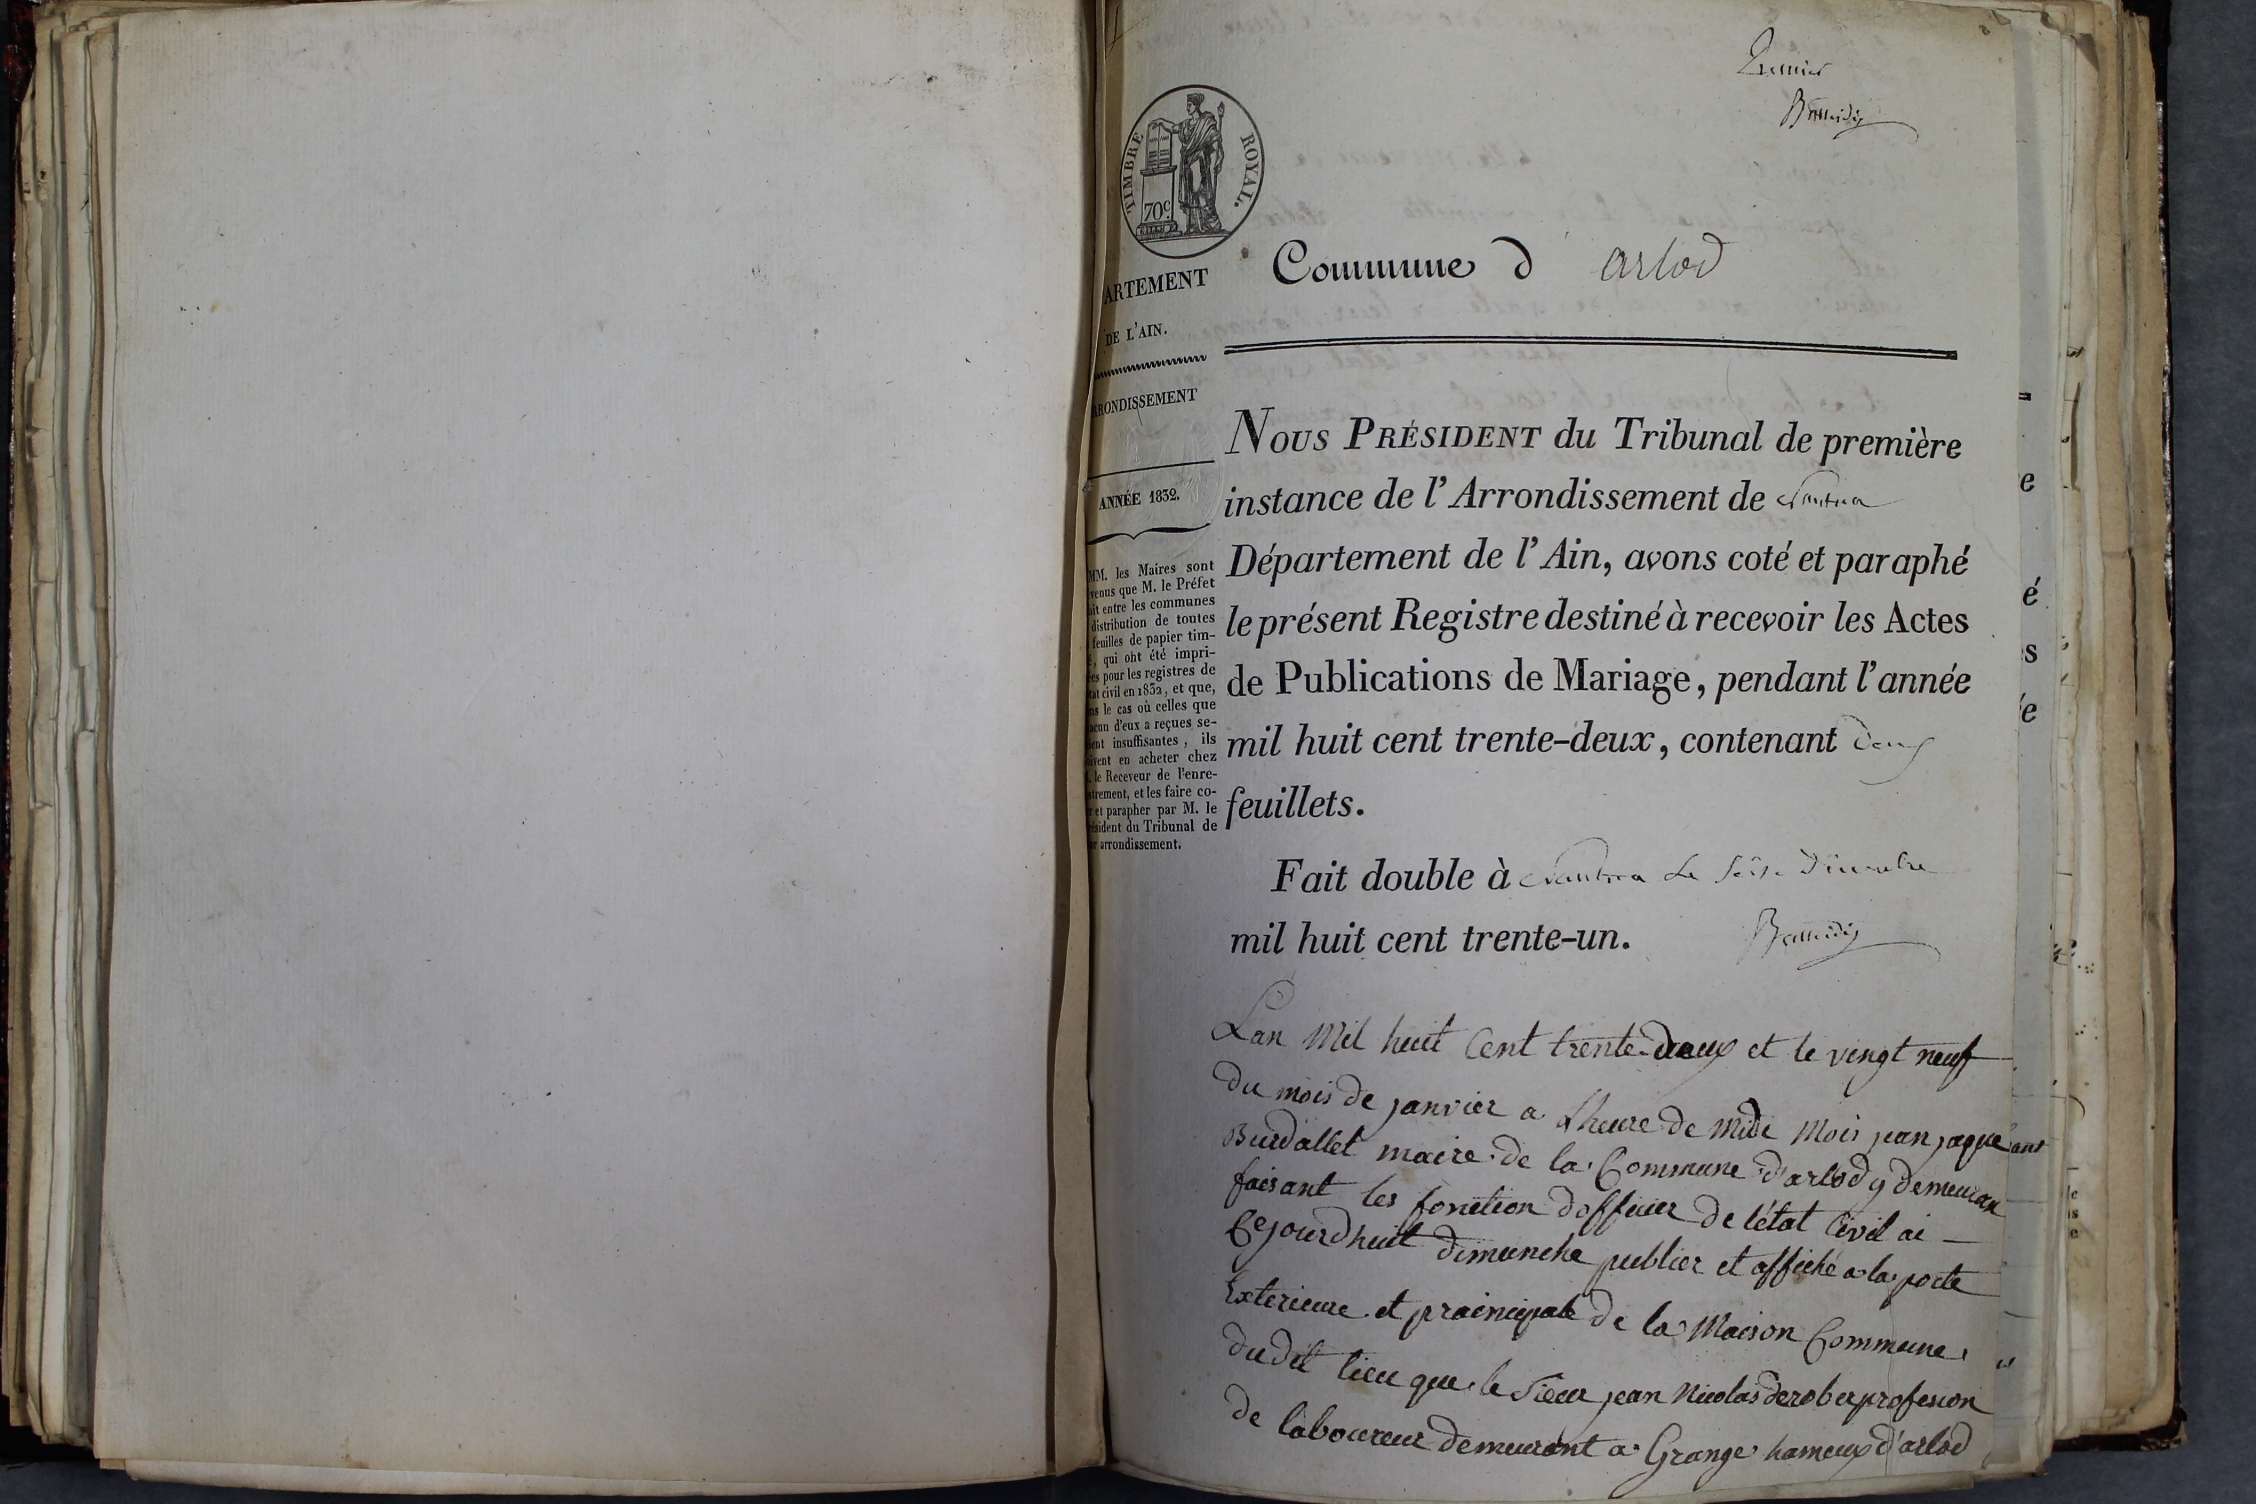 Premier
TIMBRE ROYAL.
70c
Commune d'arlod
ARTEMENT
DE L'AIN.
RRONDISSEMENT
ANNÉE 1832.
MM. les Maires sont
venus que M. le Préfet
ait entre les communes
distribution de toutes
feuilles de papier tim-
é, qui ont été impri-
ées pour les registres de
tat civil en 1832, et que,
ns le cas où celles que
acun d'eux a reçues se-
ient insuffisantes, ils
oivent en acheter chez
. le Receveur de l'enre-
strement, et les faire co-
r et parapher par M. le
ésident du Tribunal de
ur arrondissement.
NOUS PRÉSIDENT du Tribunal de première
instance de l'Arrondissement de Nantua
Département de l'Ain, avons coté et paraphé
le présent Registre destiné à recevoir les Actes
de Publications de Mariage, pendant l'année
mil huit cent trente-deux, contenant deux
feuillets.
Fait double à Nantua le
mil huit cent trente-un.
Lan Mil huit Cent trente-deux et le vingt neuf
du mois de janvier a Lheure de Midi Mois jean jaque
Burdallet maire de la Commune d'arlod y demeurant
faisant les fonction dofficier de létat Civil ai
Cejourdhuit dimanche publier et affiché a la porte
Exterieure et praincipale de la Maison Commune
dudit lieu que le Sieur jean Nicolas derober profession
de laboureur demeurant a Grange hameux d'arlod